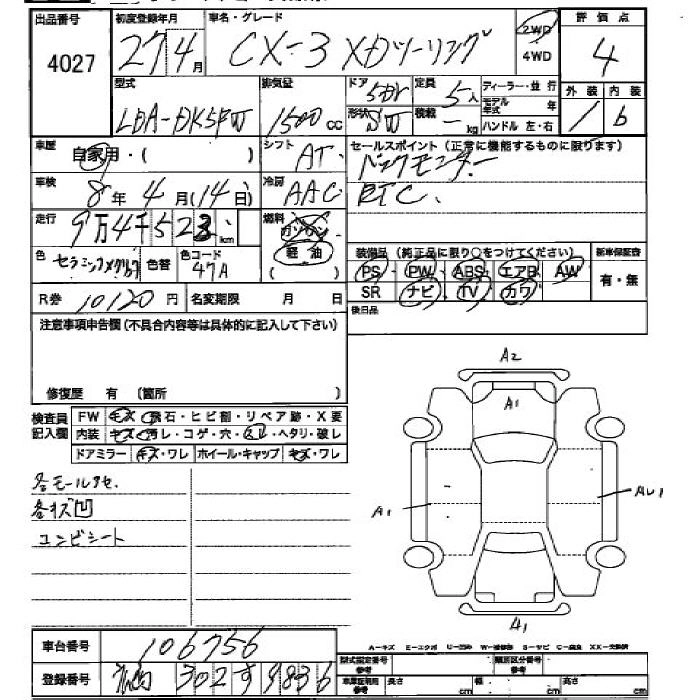 出品番号 初度登録年月 車名・グレード 2WD 評価点
4027 27年4月 CX-3 XDツーリング 4WD 4
型式 排気量 ドア 5DR 定員 5人 ディーラー・並行 外装 内装
LDA-DK5FW 1500cc 形状 SW 積載 - kg モデル年式 年 ハンドル 左・右 1 b
車歴 自家用・( ) シフト AT セールスポイント(正常に機能するものに限ります)
車検 8年4月(14日) 冷房 AAC バックモニター
ETC
走行 9万4千523km 燃料 ガソリン 軽油 ( )
色 セラミックメタ 色替 色コード 47A
装備品(純正品に限り○をつけてください) 新車保証書
PS PW ABS エアB AW 有・無
SR ナビ TV カワ
R券 10120円 名変期限 月 日 後日品
注意事項申告欄(不具合内容等は具体的に記入して下さい)
修復歴 有 (箇所 )
検査員記入欄 FW キズ・飛石・ヒビ割・リペア跡・X要
内装 キズ・汚レ・コゲ・穴・スレ・ヘタリ・破レ
ドアミラー キズ・ワレ ホイール・キャップ キズ・ワレ
各モールアセ
各キズ凹
コンビシート
A2
A1
A1
AU1
A1
車台番号 106756
A-キズ E-エクボ U-凹み W-補修跡 S-サビ C-腐食 XX-交換済
登録番号 302 す 9836
型式指定番号 参考 類別区分番号 参考
車庫証明用 参考 長さ cm 幅 cm 高さ cm